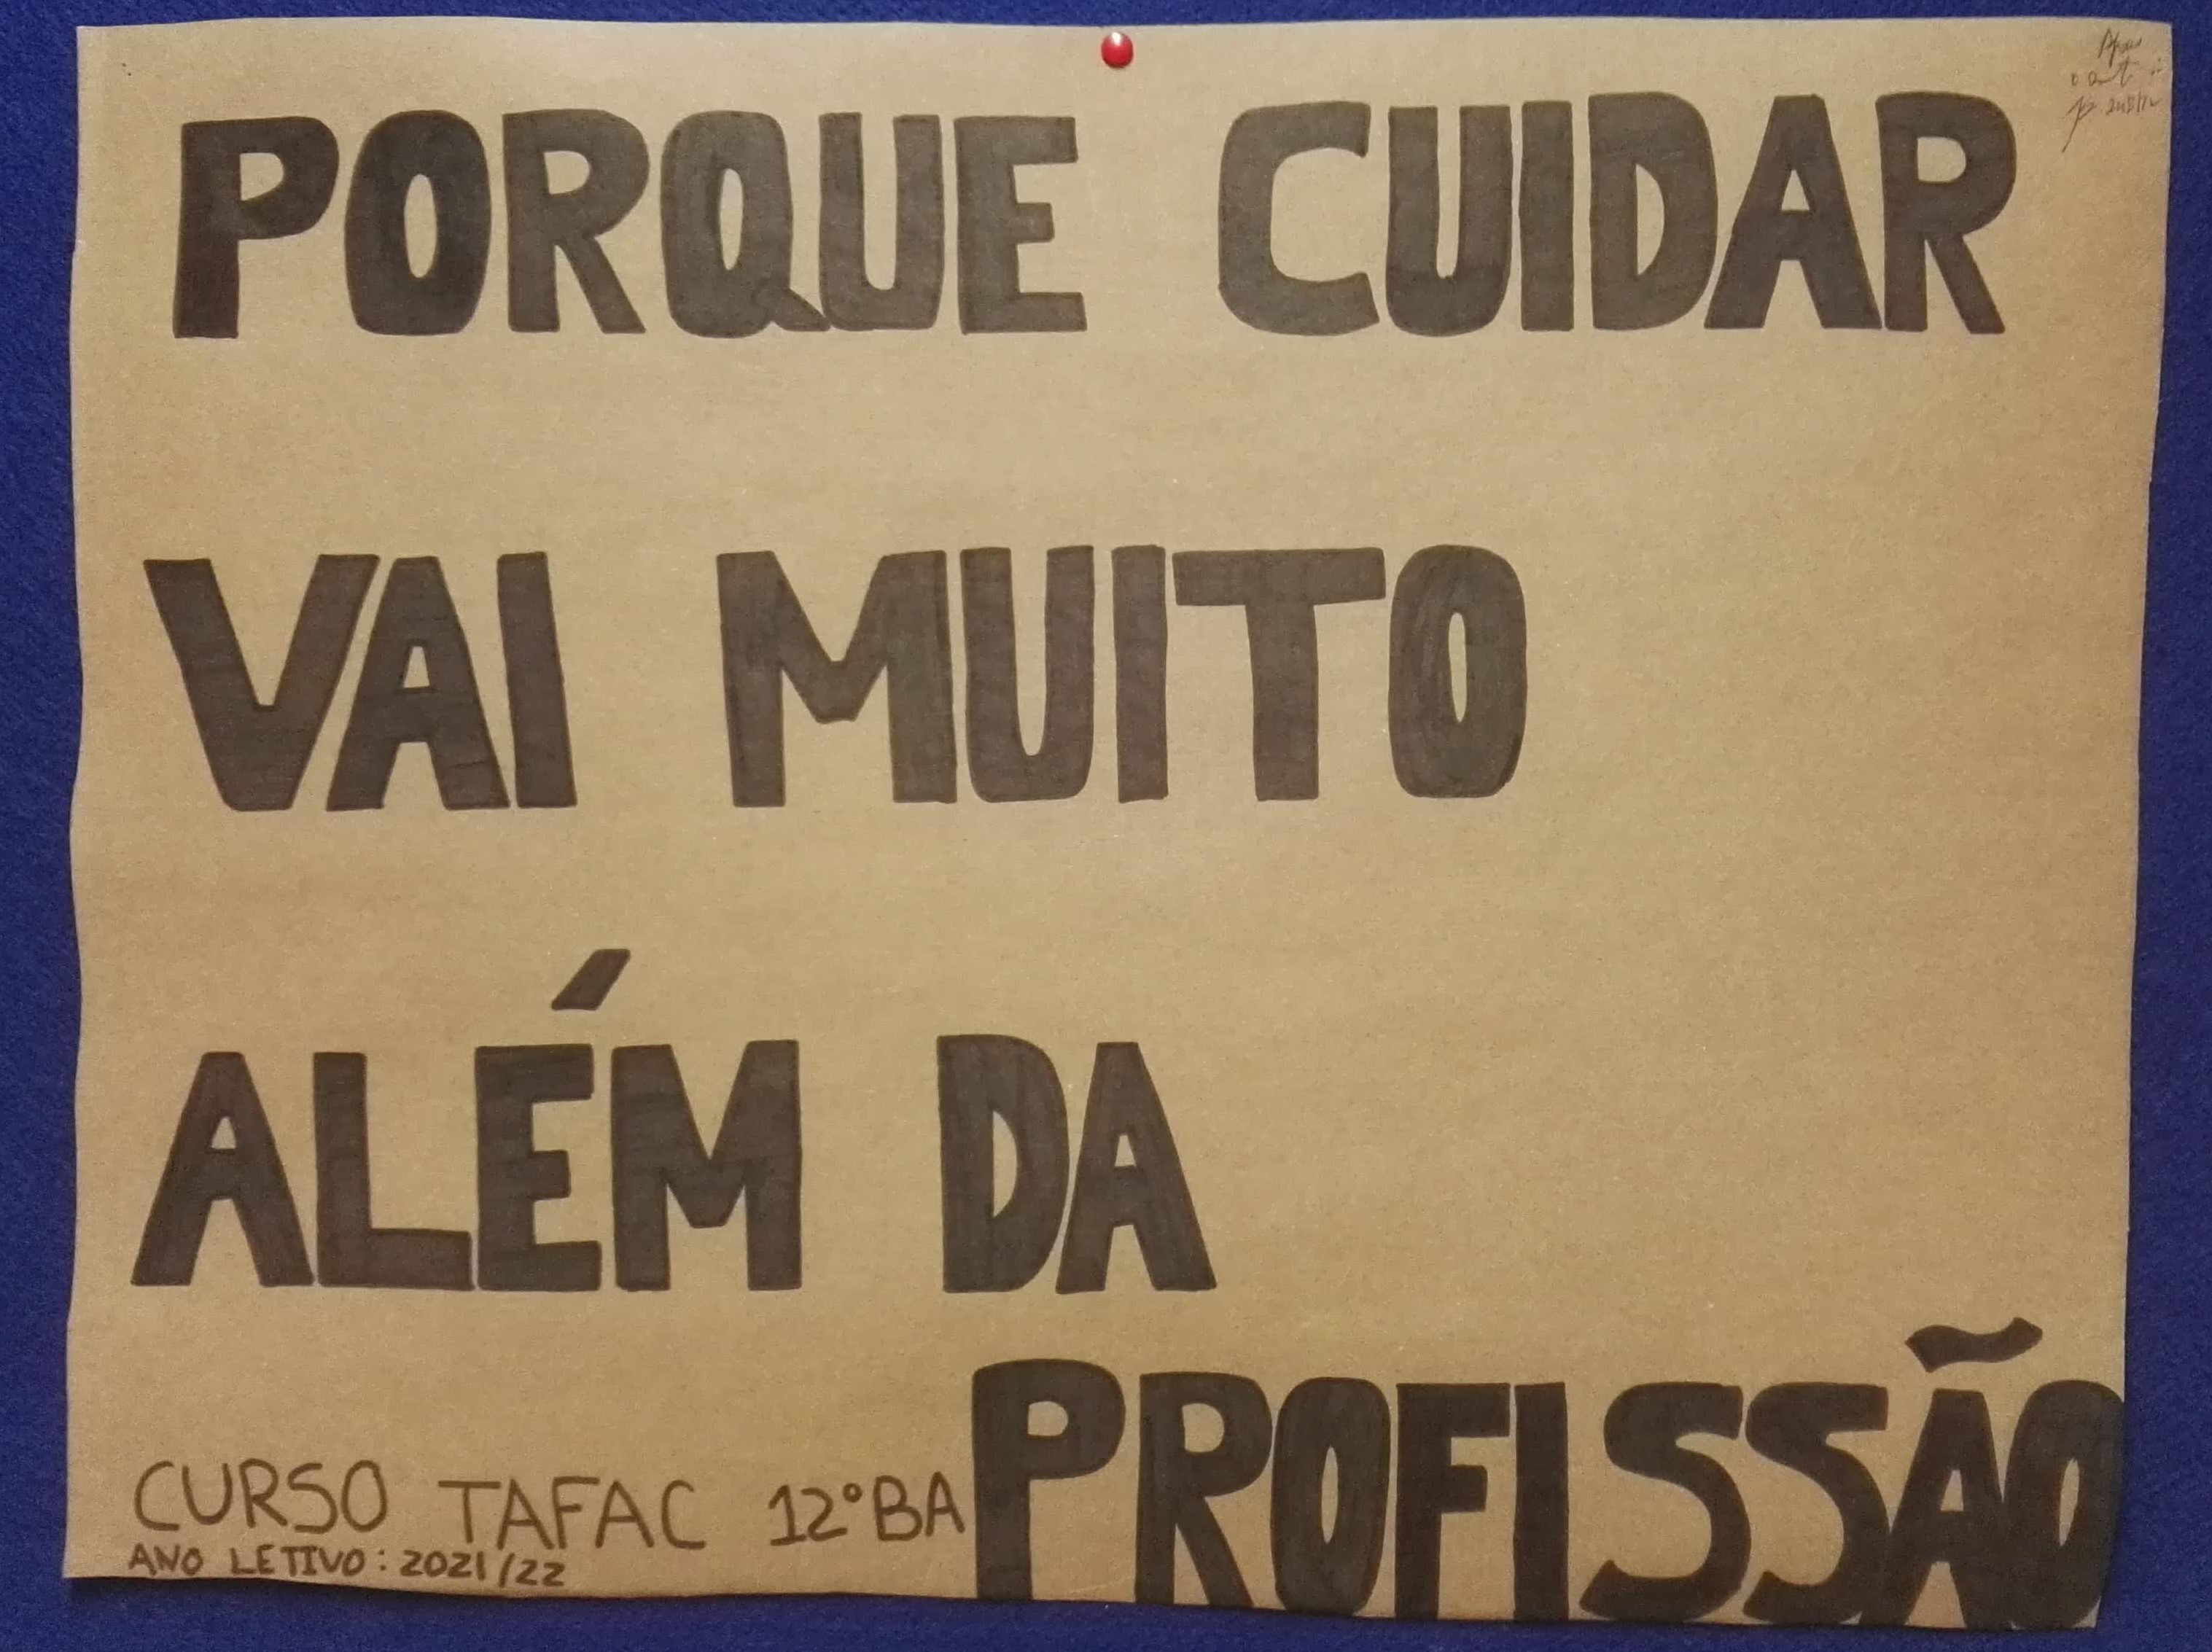 PORQUE CUIDAR
VAI MUITO
ALÉM DA
PROFISSÃO
CURSO TAFAC 12ºBA
ANO LETIVO: 2021/22